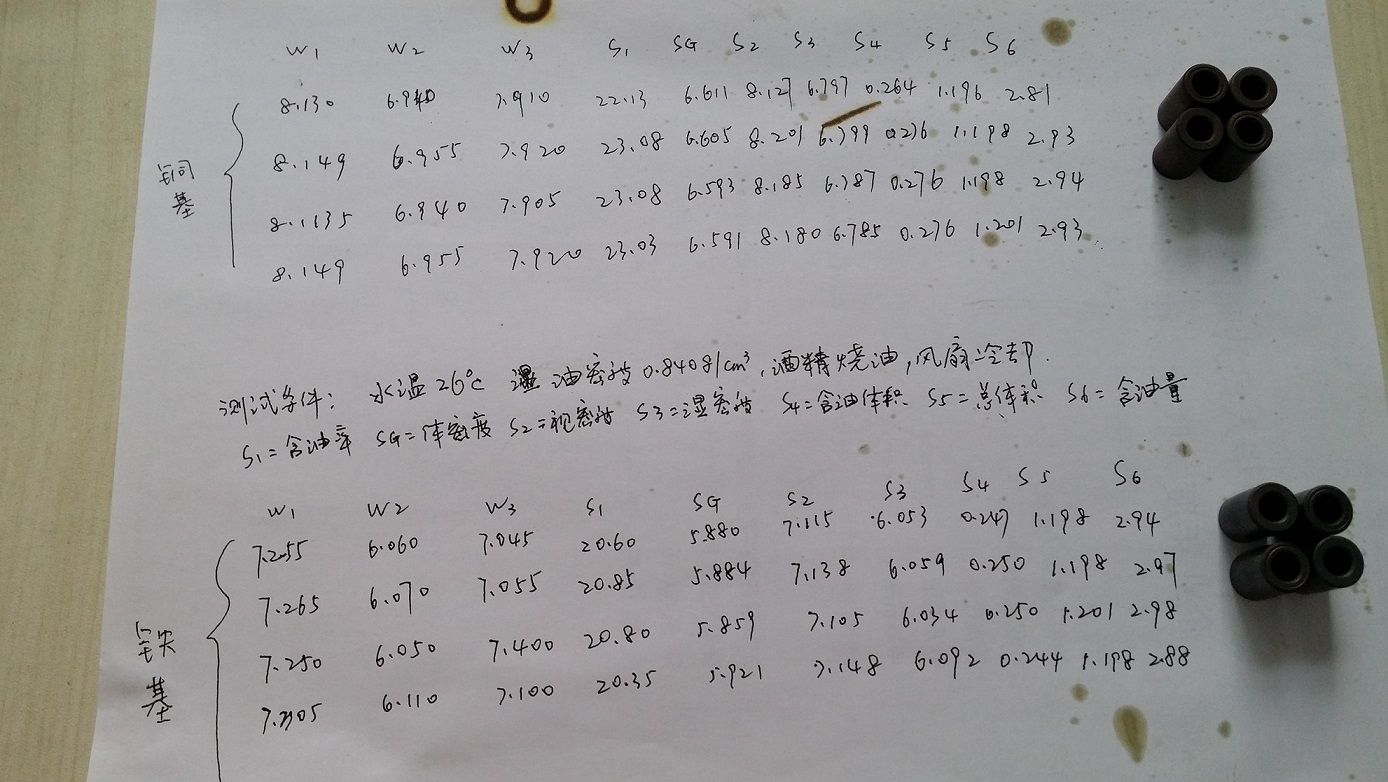 W1 W2 W3 S1 SG S2 S3 S4 S5 S6
8.130 6.940 7.910 22.13 6.611 8.127 6.797 0.264 1.196 2.81
铜基
8.149 6.955 7.920 23.08 6.605 8.201 6.799 0.276 1.198 2.93
8.1135 6.940 7.905 23.08 6.593 8.185 6.787 0.276 1.198 2.94
8.149 6.955 7.920 23.03 6.591 8.180 6.785 0.276 1.201 2.93
测试条件: 水温26℃ 油密度0.8408/cm³,酒精烧油,风扇冷却.
S1=含油率 SG=体密度 S2=视密度 S3=湿密度 S4=含油体积 S5=总体积 S6=含油量
W1 W2 W3 S1 SG S2 S3 S4 S5 S6
7.255 6.060 7.045 20.60 5.880 7.115 6.053 0.247 1.198 2.94
7.265 6.070 7.055 20.85 5.884 7.138 6.059 0.250 1.198 2.97
铁基
7.250 6.050 7.400 20.80 5.859 7.105 6.034 0.250 1.201 2.98
7.305 6.110 7.100 20.35 5.921 7.148 6.092 0.244 1.198 2.88